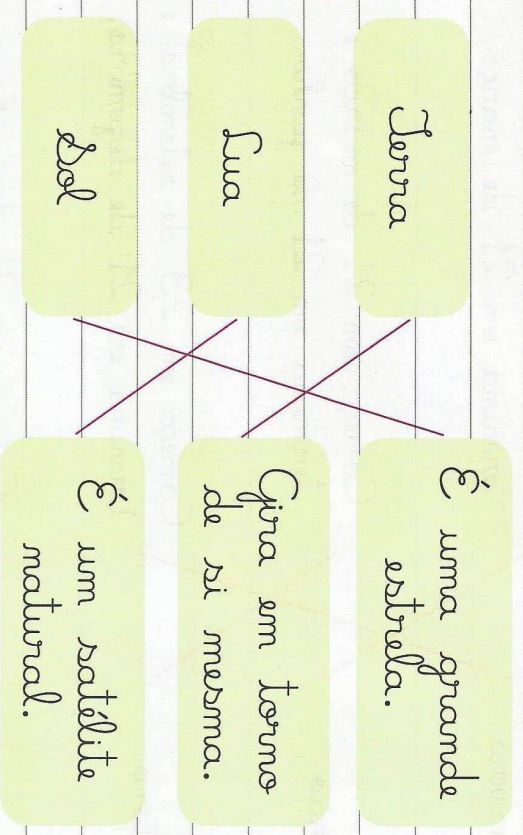 Terra
Lua
Sol
É uma grande
estrela.
Gira em torno
de si mesma.
É um satélite
natural.